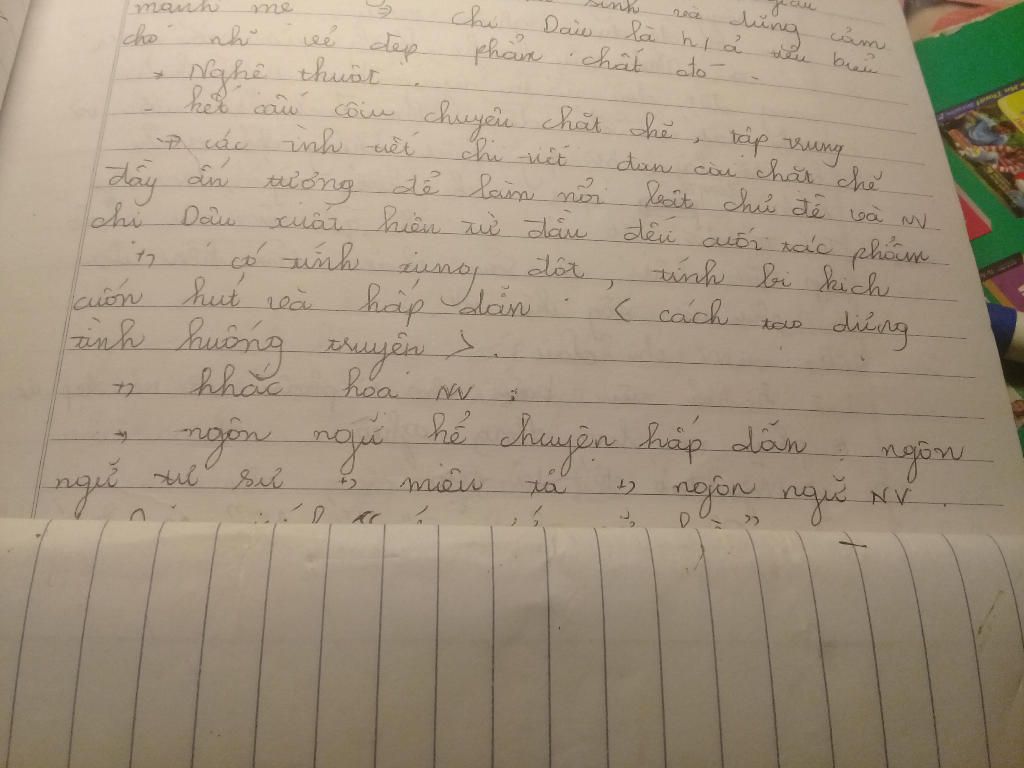 sinh và dũng cảm
mạnh mẽ => chị Dậu là h/ả tiêu biểu
cho nh~ vẻ đẹp phẩm chất đó.
* Nghệ thuật.
- kết cấu câu chuyện chặt chẽ, tập trung
-> các tình tiết chi tiết đan cài chặt chẽ
đầy ấn tượng để làm nổi bật chủ đề và NV
chị Dậu xuất hiện từ đầu đến cuối tác phẩm
+, có tính xung đột, tính bi kịch
cuốn hút và hấp dẫn. < cách tạo dựng
tình huống truyện >.
+, khắc họa NV :
-> ngôn ngữ kể chuyện hấp dẫn : ngôn
ngữ tự sự +, miêu tả +, ngôn ngữ NV.